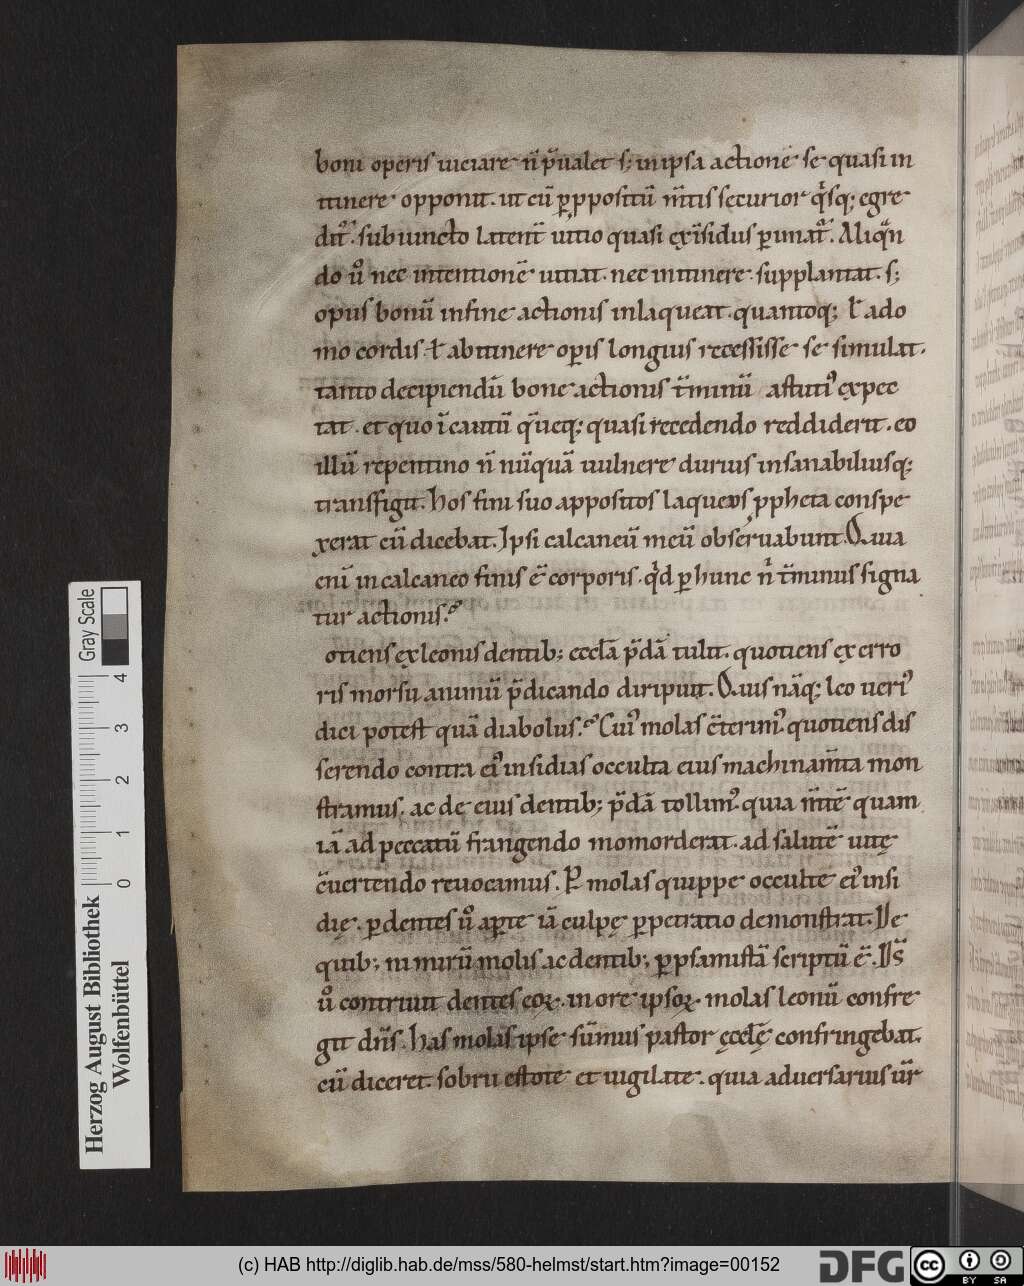 boni operis uiciare n̄ p̄ualet s; in ipsa actione se quasi in
itinere opponit. ut cū ꝑ ꝓpositū m̄tis securior q̇sq; egre
dit᷑. subiuncto latent̄ uitio quasi ex īsidus ꝑimat᷑. Aliqn̄
do ů nec intentionē uitiat. nec in itinere supplantat. s;
opus bonū in fine actionis inlaqueat. quantoq; ł a do
mo cordis. ł ab itinere oꝑis longius recessisse se simulat.
tanto decipiendū bone actionis t̄minū astuti᷒ expec
tat. et quo īcautū q̄ueq; quasi recedendo reddiderit. eo
illū repentino n̄ nūquā uulnere durius insanabiliusq;
transfigit. Hos fini suo appositos laqueos ꝓpheta conspe
xerat cū dicebat. Ipsi calcaneū meū obseruabunt. Quia
eni in calcaneo finis ē corporis. qd̓ ꝑ hunc n̓ t̄minus signa
tur actionis.
otiens ex leonis dentib; eccłā p̄dā tulit. quotiens ex erro
ris morsu animū p̄dicando diripuit. Quis nāq; leo ueri᷒
dici potest quā diabolus. Cui᷒ molas c̄terim᷒ quotiens dis
serendo contra ei᷒ insidias occulta eius machinam̄ta mon
stramus. ac de eius dentib; p̄dā tollim᷒. quia m̄tē quam
iā ad peccatū frangendo momorderat. ad salutē uitę
c̄uertendo reuocamus. P̱ molas quippe occulte ei᷒ insi
dię. ꝑ dentes ů aꝑte iā culpę ꝑpetratio demonstrat. De
quib; nimirū molis ac dentib; ꝑ psamistā scriptū ē. D̄S
ů contriuit dentes eoꝝ. in ore ipsoꝝ. molas leonū confre
git dn̄s. Has molas ipse sūmus pastor ęcclę confringebat.
cū diceret. sobrii estote et uigilate. quia aduersarius ūr
Gray Scale
4
3
2
1
0
Herzog August Bibliothek
Wolfenbüttel
(c) HAB http://diglib.hab.de/mss/580-helmst/start.htm?image=00152
DFG
cc
BY SA